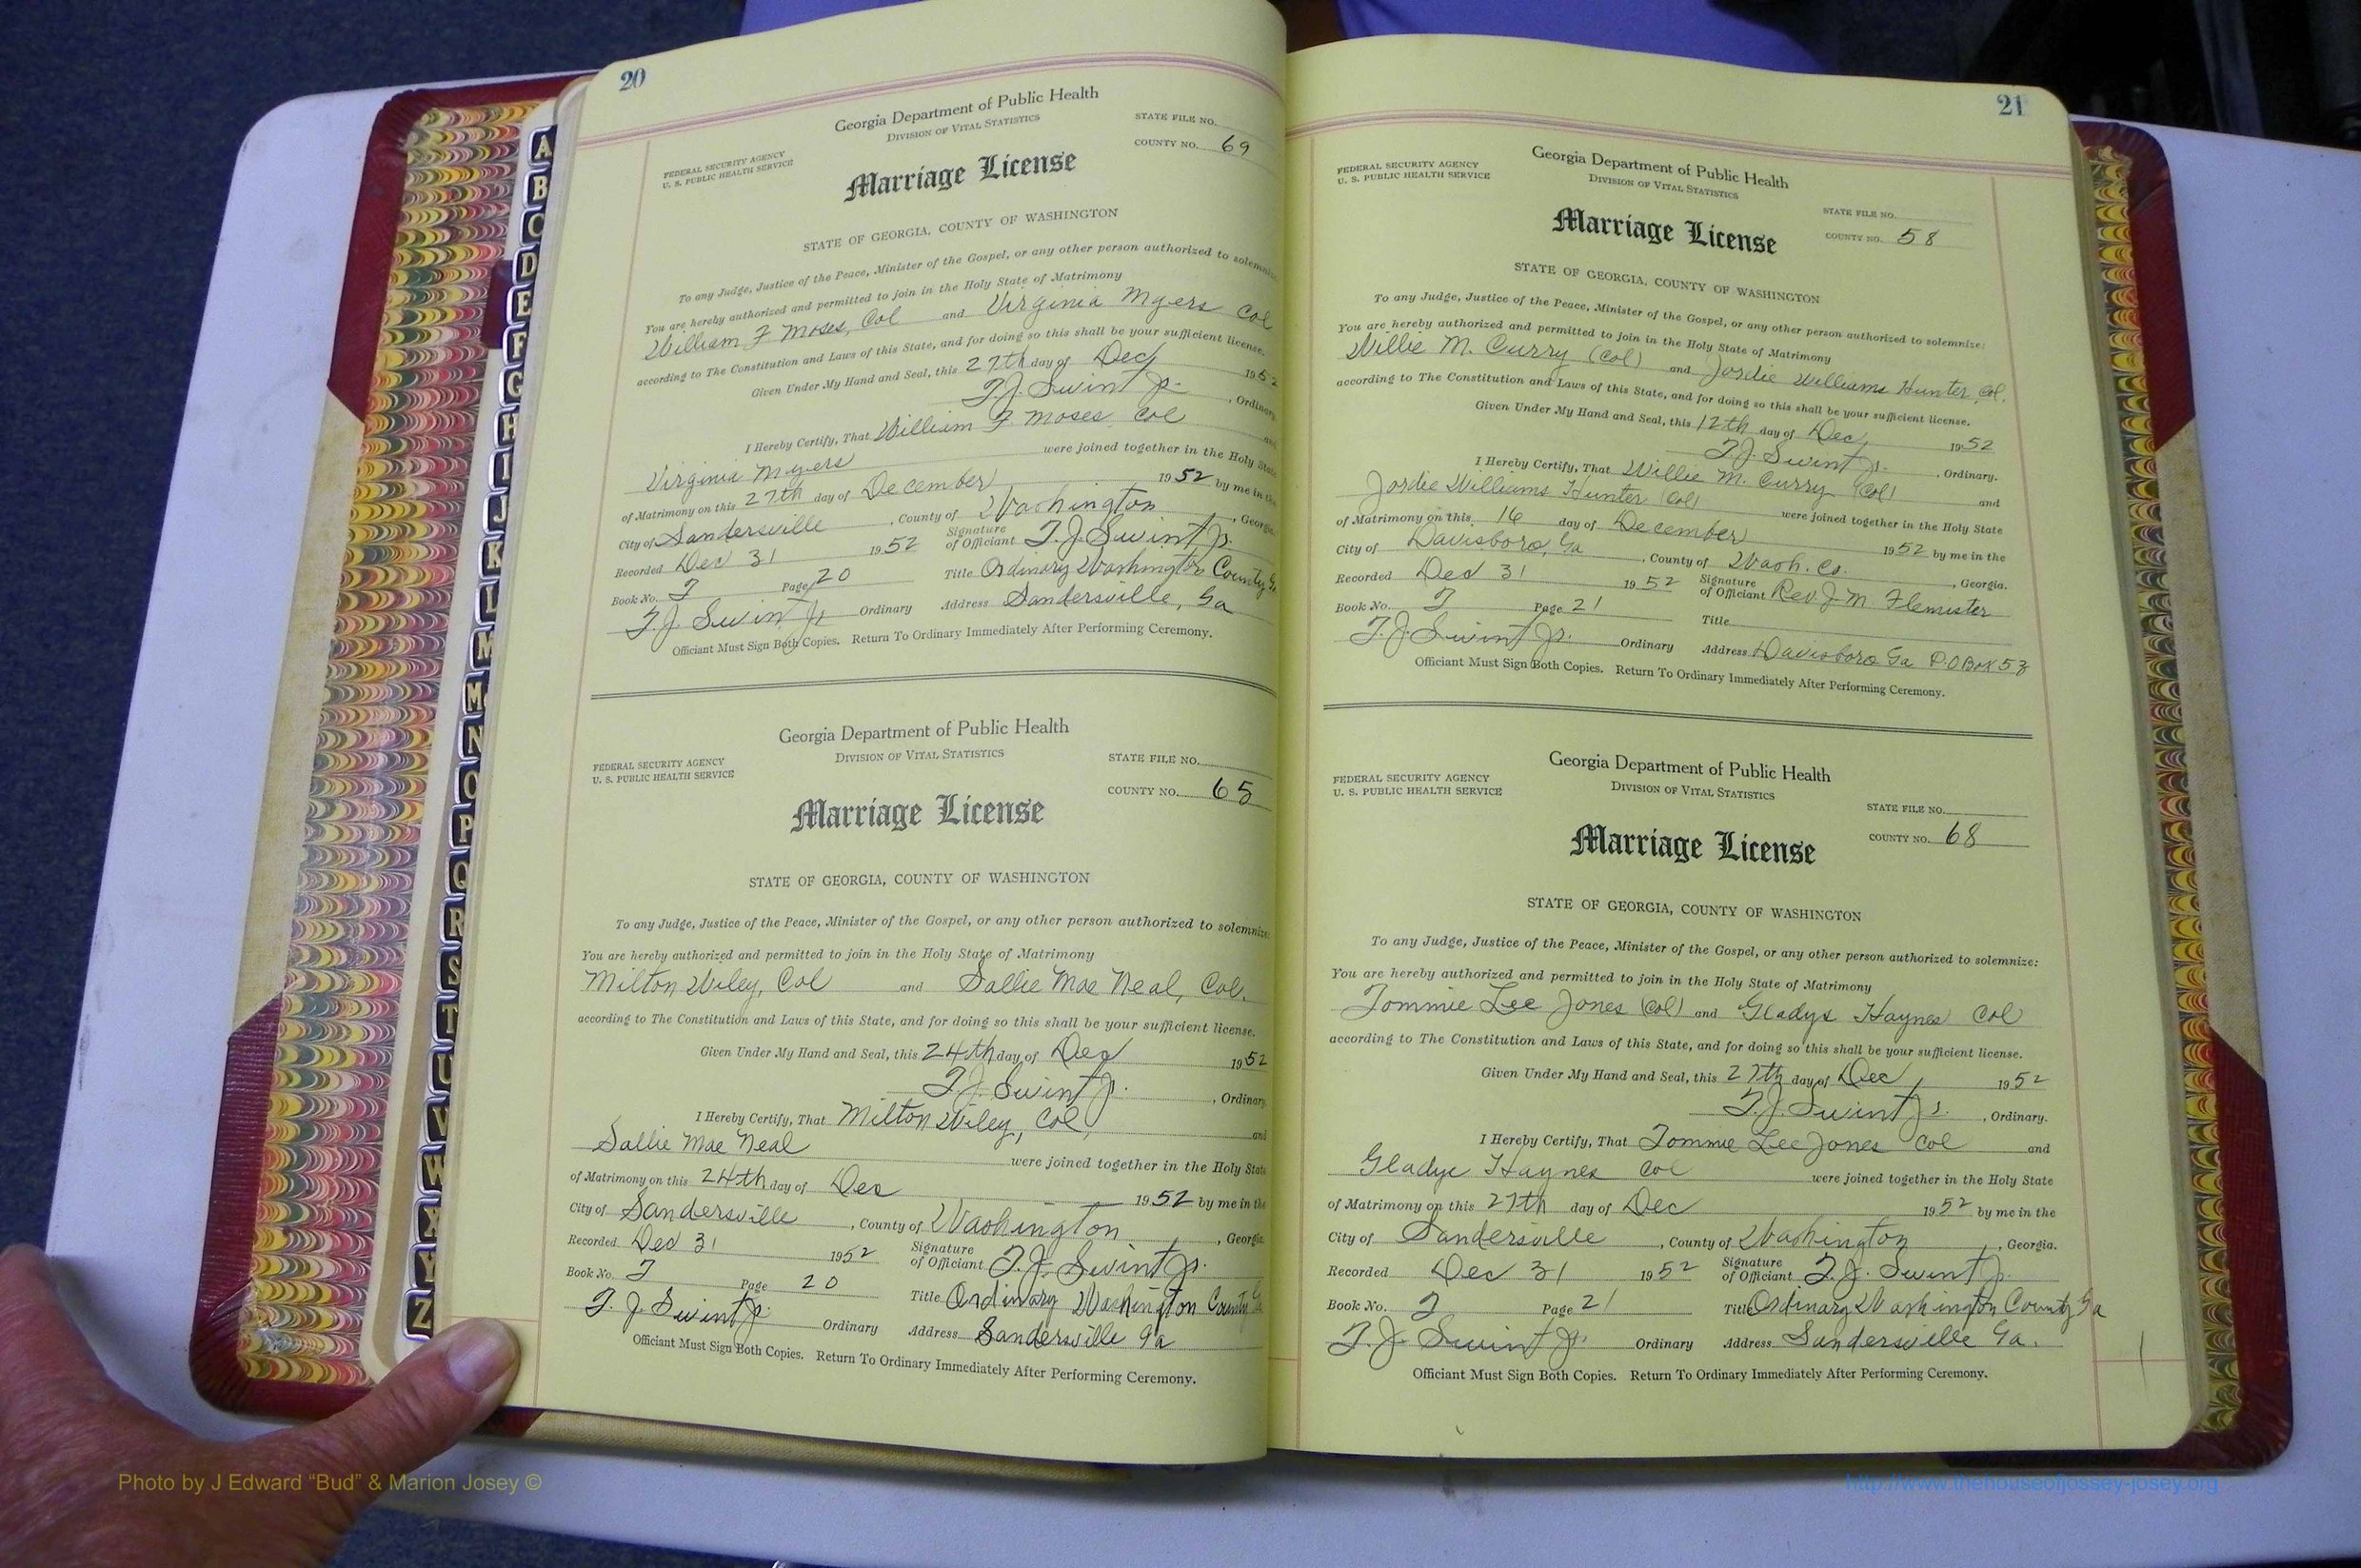 20
Georgia Department of Public Health
DIVISION OF VITAL STATISTICS
FEDERAL SECURITY AGENCY
U. S. PUBLIC HEALTH SERVICE
STATE FILE NO.
COUNTY NO. 69
Marriage License
STATE OF GEORGIA, COUNTY OF WASHINGTON
To any Judge, Justice of the Peace, Minister of the Gospel, or any other person authorized to solemnize:
You are hereby authorized and permitted to join in the Holy State of Matrimony
William F Moses, Col and Virginia Myers Col
according to The Constitution and Laws of this State, and for doing so this shall be your sufficient license.
Given Under My Hand and Seal, this 27th day of Dec, 1952
T.J. Swint Jr. , Ordinary.
I Hereby Certify, That William F. Moses Col and
Virginia Myers were joined together in the Holy State
of Matrimony on this 27th day of December 1952 by me in the
City of Sandersville , County of Washington , Georgia.
Recorded Dec 31 1952 Signature of Officiant T.J. Swint Jr.
Book No. T Page 20 Title Ordinary Washington County Ga
T.J. Swint Jr Ordinary Address Sandersville, Ga
Officiant Must Sign Both Copies. Return To Ordinary Immediately After Performing Ceremony.
Georgia Department of Public Health
DIVISION OF VITAL STATISTICS
FEDERAL SECURITY AGENCY
U. S. PUBLIC HEALTH SERVICE
STATE FILE NO.
COUNTY NO. 65
Marriage License
STATE OF GEORGIA, COUNTY OF WASHINGTON
To any Judge, Justice of the Peace, Minister of the Gospel, or any other person authorized to solemnize:
You are hereby authorized and permitted to join in the Holy State of Matrimony
Milton Wiley, Col and Sallie Mae Neal, Col.
according to The Constitution and Laws of this State, and for doing so this shall be your sufficient license.
Given Under My Hand and Seal, this 24th day of Dec 1952
T.J. Swint Jr. , Ordinary.
I Hereby Certify, That Milton Wiley, Col, and
Sallie Mae Neal were joined together in the Holy State
of Matrimony on this 24th day of Dec 1952 by me in the
City of Sandersville , County of Washington , Georgia.
Recorded Dec 31 1952 Signature of Officiant T.J. Swint Jr.
Book No. T Page 20 Title Ordinary Washington County Ga
T.J. Swint Jr. Ordinary Address Sandersville Ga
Officiant Must Sign Both Copies. Return To Ordinary Immediately After Performing Ceremony.
21
Georgia Department of Public Health
DIVISION OF VITAL STATISTICS
FEDERAL SECURITY AGENCY
U. S. PUBLIC HEALTH SERVICE
STATE FILE NO.
COUNTY NO. 58
Marriage License
STATE OF GEORGIA, COUNTY OF WASHINGTON
To any Judge, Justice of the Peace, Minister of the Gospel, or any other person authorized to solemnize:
You are hereby authorized and permitted to join in the Holy State of Matrimony
Willie M. Curry (Col) and Jordie Williams Hunter, Col.
according to The Constitution and Laws of this State, and for doing so this shall be your sufficient license.
Given Under My Hand and Seal, this 12th day of Dec, 1952
T.J. Swint Jr. , Ordinary.
I Hereby Certify, That Willie M. Curry (Col) and
Jordie Williams Hunter (Col) were joined together in the Holy State
of Matrimony on this 16 day of December 1952 by me in the
City of Davisboro, Ga , County of Wash. Co. , Georgia.
Recorded Dec 31 1952 Signature of Officiant Rev. J. M. Flemister
Book No. T Page 21 Title
T.J. Swint Jr. Ordinary Address Davisboro Ga P.O Box 53
Officiant Must Sign Both Copies. Return To Ordinary Immediately After Performing Ceremony.
Georgia Department of Public Health
DIVISION OF VITAL STATISTICS
FEDERAL SECURITY AGENCY
U. S. PUBLIC HEALTH SERVICE
STATE FILE NO.
COUNTY NO. 68
Marriage License
STATE OF GEORGIA, COUNTY OF WASHINGTON
To any Judge, Justice of the Peace, Minister of the Gospel, or any other person authorized to solemnize:
You are hereby authorized and permitted to join in the Holy State of Matrimony
Tommie Lee Jones (Col) and Gladys Haynes Col
according to The Constitution and Laws of this State, and for doing so this shall be your sufficient license.
Given Under My Hand and Seal, this 27th day of Dec, 1952
T.J. Swint Jr. , Ordinary.
I Hereby Certify, That Tommie Lee Jones Col and
Gladys Haynes Col were joined together in the Holy State
of Matrimony on this 27th day of Dec 1952 by me in the
City of Sandersville , County of Washington , Georgia.
Recorded Dec 31 1952 Signature of Officiant T.J. Swint Jr.
Book No. T Page 21 Title Ordinary Washington County Ga
T.J. Swint Jr. Ordinary Address Sandersville Ga.
Officiant Must Sign Both Copies. Return To Ordinary Immediately After Performing Ceremony.
A
B
C
D
E
F
G
H
I
J
K
L
M
M
N
O
P
Q
R
S
T
U
V
W
X
Y
Z
Photo by J Edward “Bud” & Marion Josey ©
http://www.thehouseofjossey-josey.org